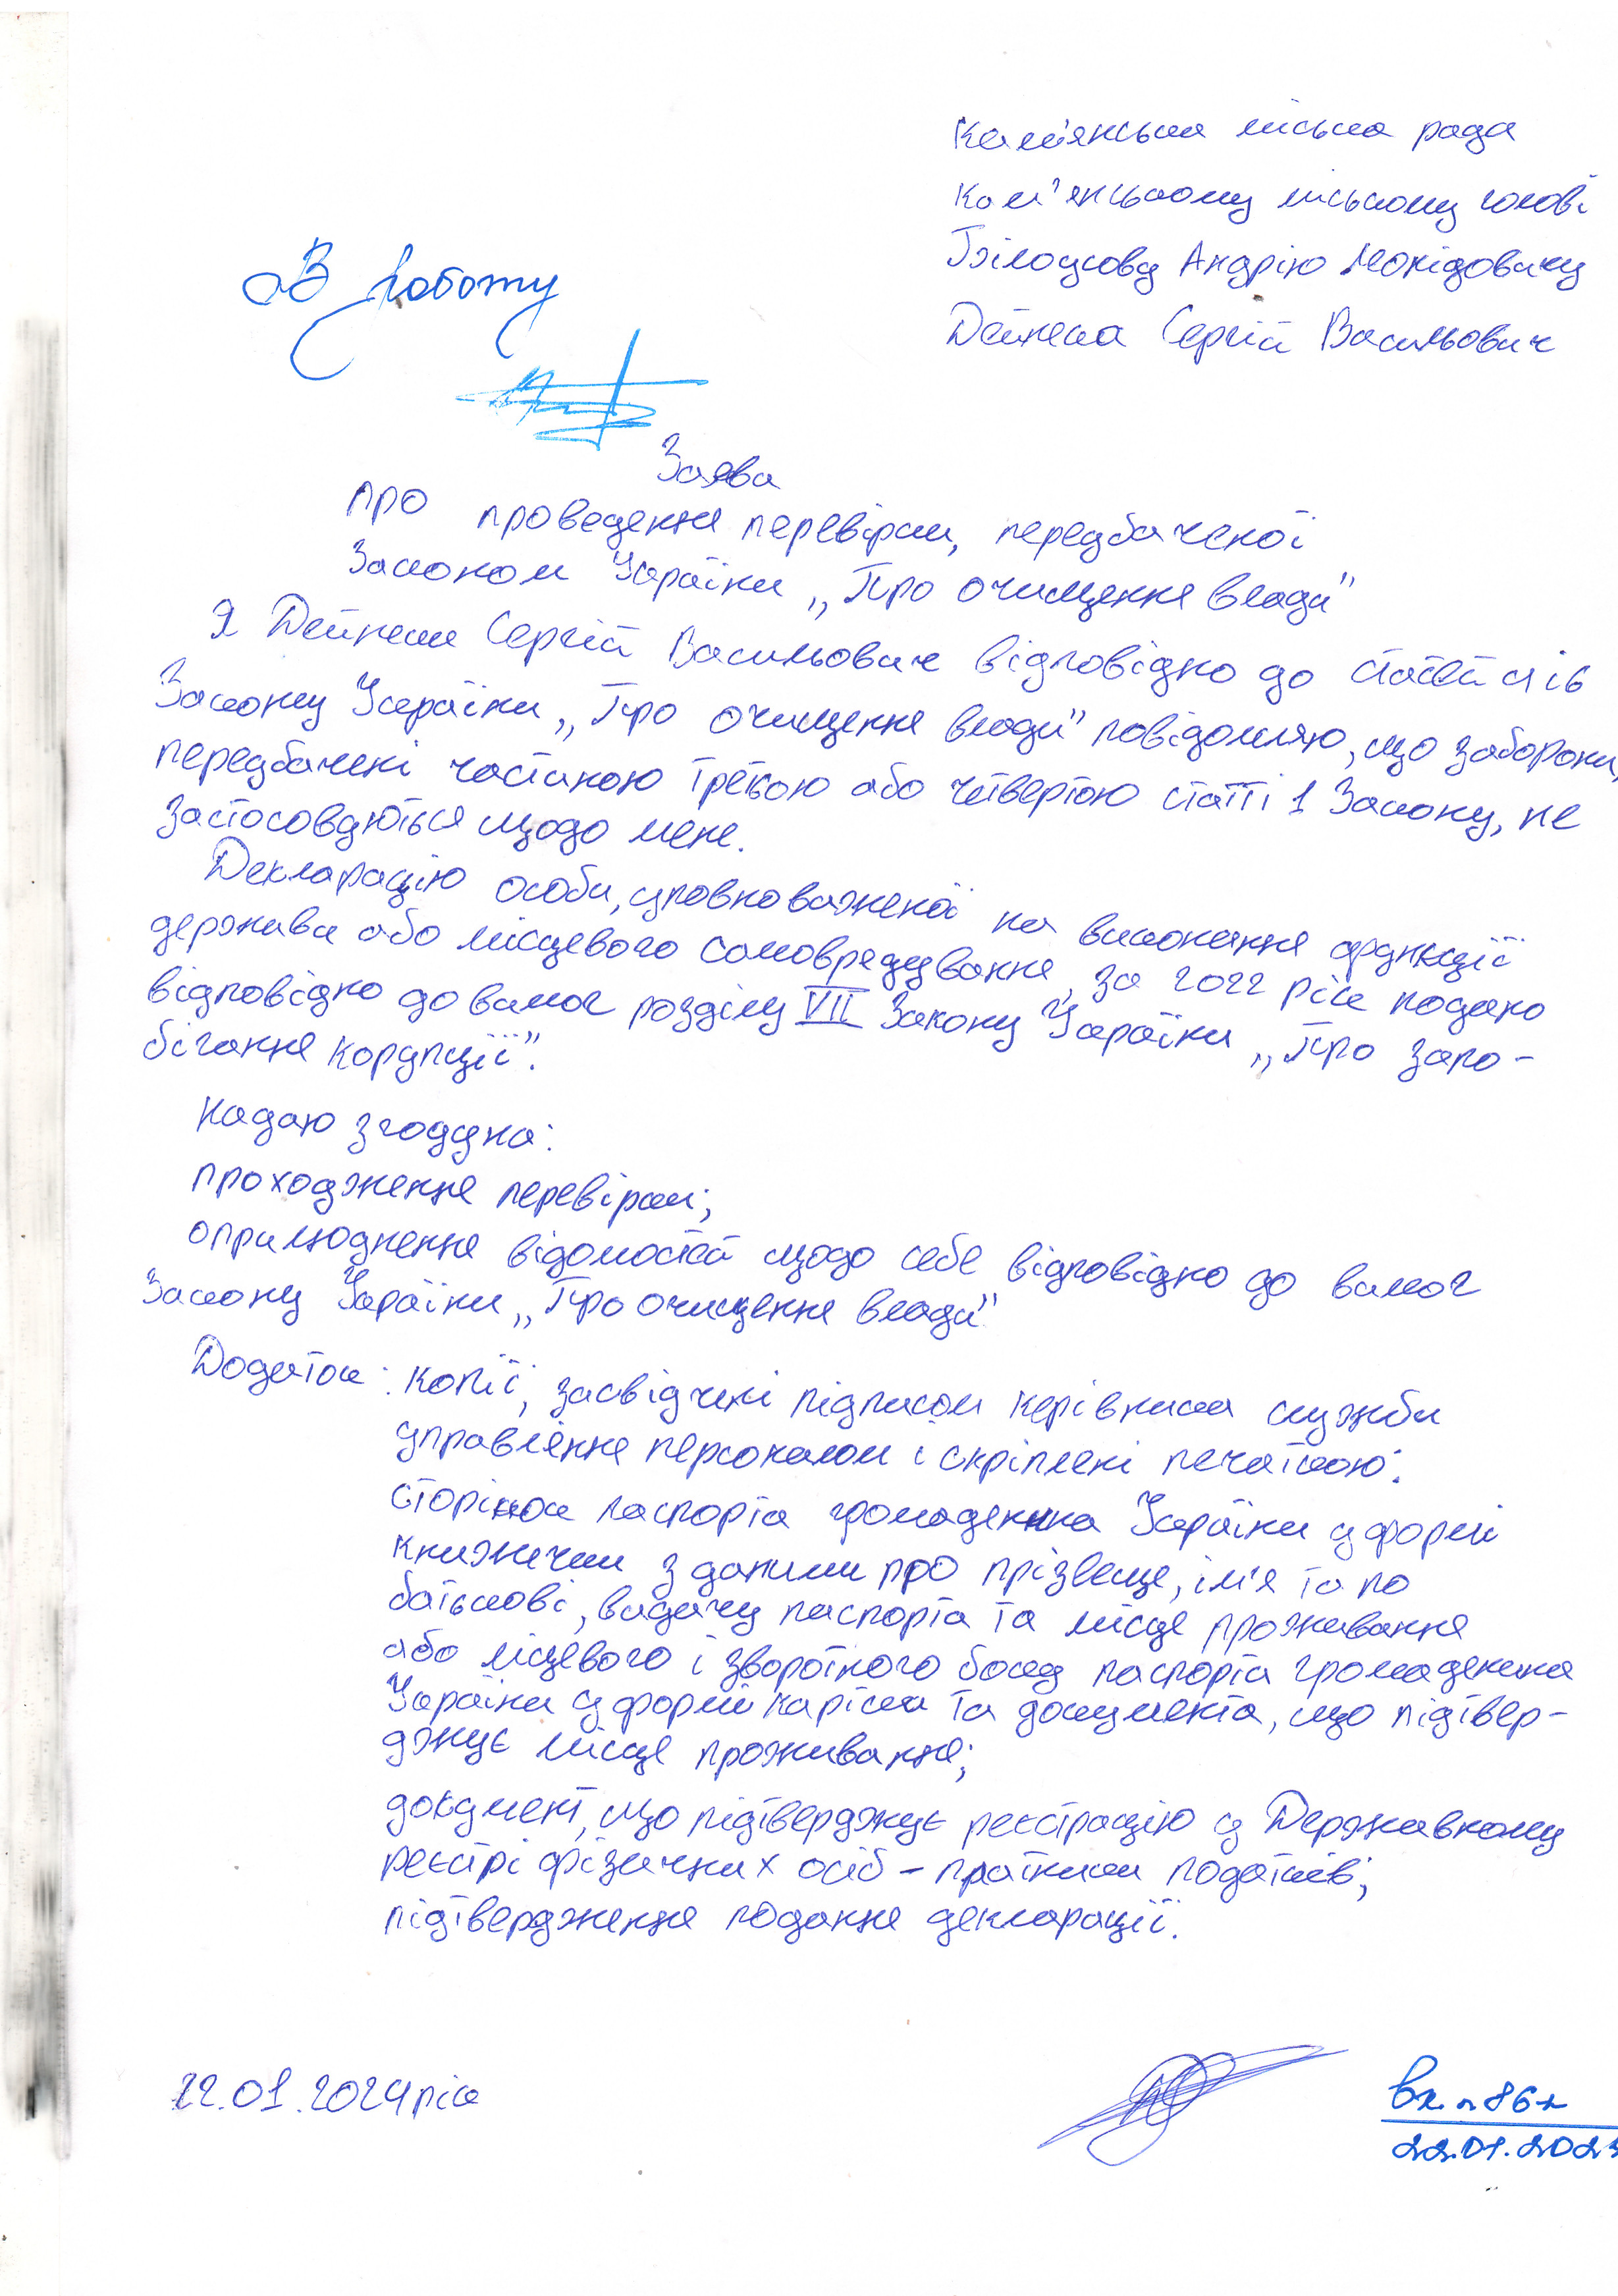 Кам'янська міська рада
Кам'янському міському голові
Білоусову Андрію Леонідовичу
Дейнека Сергій Васильович
В роботу
Заява
про проведення перевірки, передбаченої
Законом України „Про очищення влади"
Я Дейнека Сергій Васильович відповідно до статті 4
Закону України „Про очищення влади" повідомляю, що заборони,
передбачені частиною третьою або четвертою статті 1 Закону, не
застосовуються щодо мене.
Декларацію особи, уповноваженої на виконання функції
держави або місцевого самоврядування, за 2022 рік подано
відповідно до вимог розділу VII Закону України „Про запо-
бігання корупції".
Надаю згоду на:
проходження перевірки;
оприлюднення відомостей щодо себе відповідно до вимог
Закону України „Про очищення влади"
Додаток: копії, засвідчені підписом керівника служби
управління персоналом і скріплені печаткою:
сторінок паспорта громадянина України у формі
книжечки з даними про прізвище, ім'я та по
батькові, видачу паспорта та місце проживання
або лицевого і зворотного боку паспорта громадянина
України у формі картки та документа, що підтвер-
джує місце проживання;
документ, що підтверджує реєстрацію у Державному
реєстрі фізичних осіб - платників податків;
підтвердження подання декларації.
22.01.2024 рік
Вх. 
22.01.202